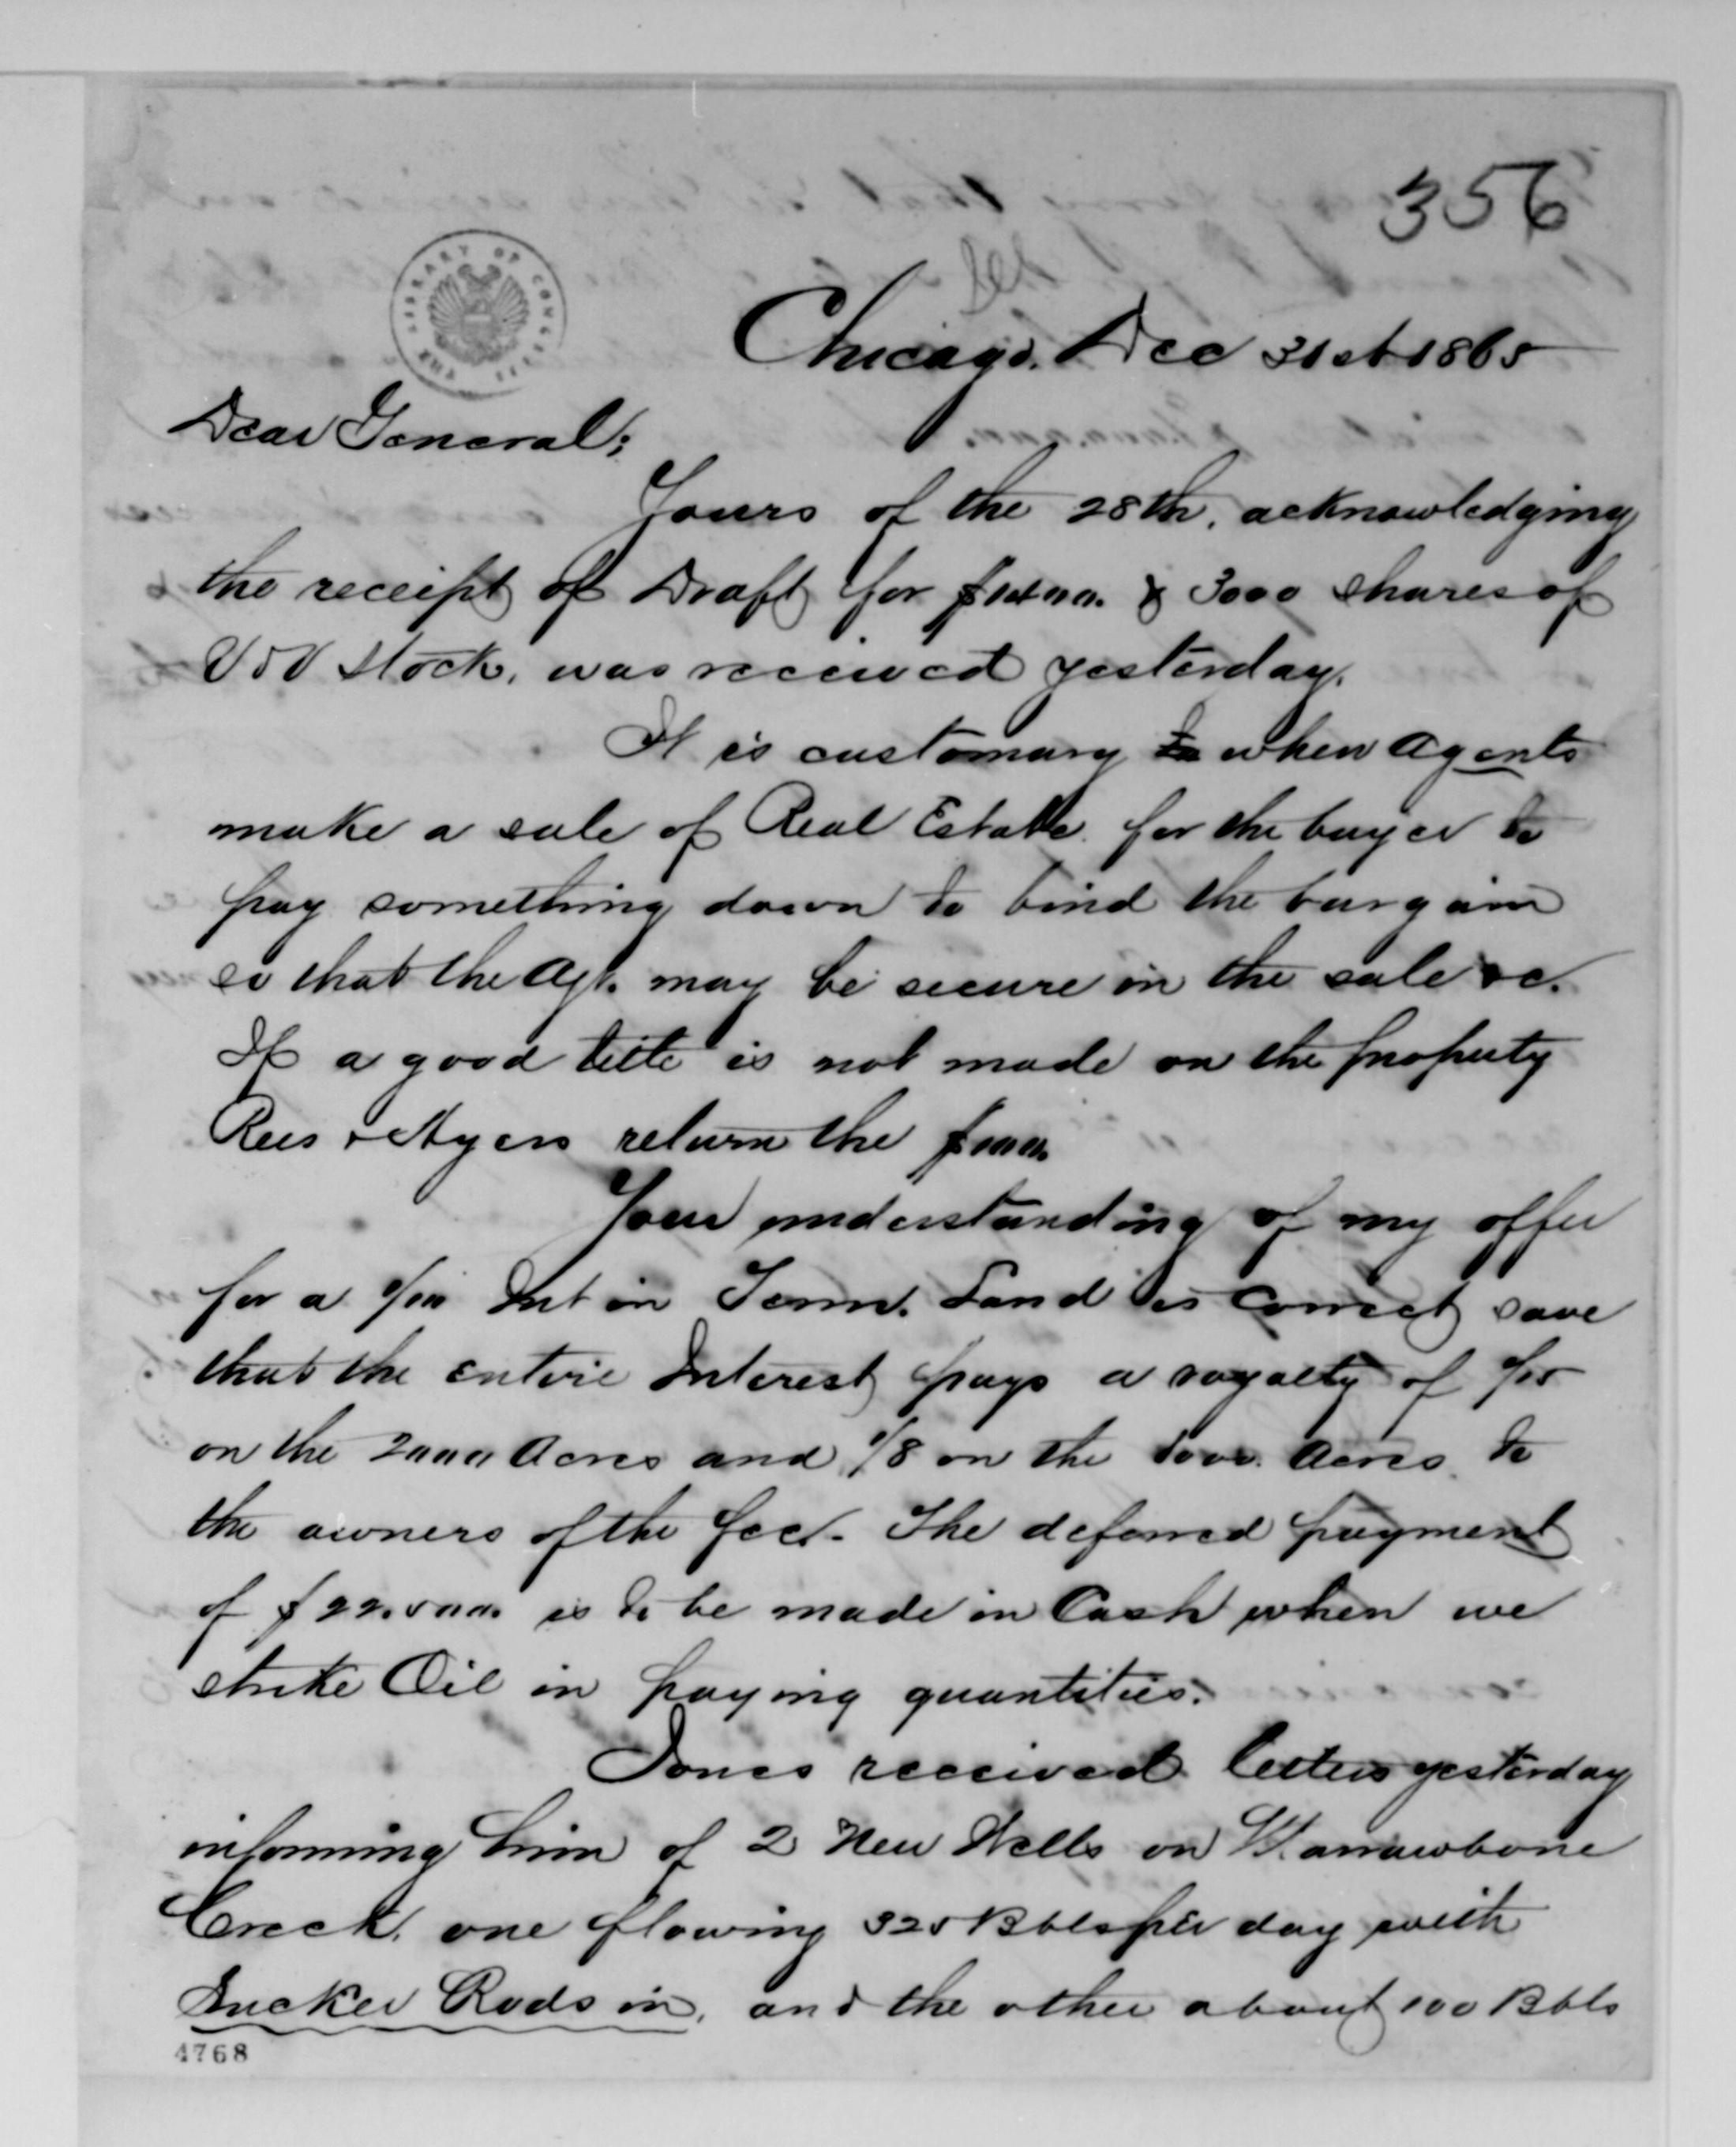 356
THE LIBRARY OF CONGRESS
Chicago. Dec 31st 1865
Dear General;
Yours of the 28th, acknowledging
the receipt of Draft for & 3000 shares of
stock, was received yesterday.
It is customary to when Agents
make a sale of Real Estate for the buyer to
pay something down to bind the bargain
so that the Agt. may be secure in the sale &c.
If a good title is not made on the property
Rees & Ayers return the
Your understanding of my offer
for a 1/10 Int in Tenn. Land is correct save
that the entire Interest pays a royalty of
on the 2000 Acres and 1/8 on the 5000. Acres to
the owners of the fee. The deferred payment
of $22.500. is to be made in Cash when we
strike Oil in paying quantities.
Jones received letters yesterday
informing him of 2 New Wells on
Creek, one flowing 325 Bbls per day with
Sucker Rods in, and the other about 100 Bbls
4768